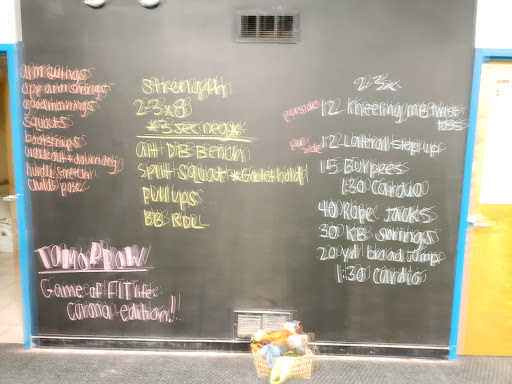 arm swings
open arm swings
goodmornings
squats
bootstraps
walkout + down dog
hurdle stretch
childs pose
strength
2-3x8
*3 sec neg*
alt DB Bench
split squat *Goblet hold
pull ups
BB RDL
2-3x
per side 12 Kneeling MB twist toss
per side 12 Lateral step up
15 Burpees
1:30 cardio
40 Rope Jacks
30 KB swings
20 yd broad jump
1:30 cardio
TOMORROW
Game of FIT life
corona edition!!